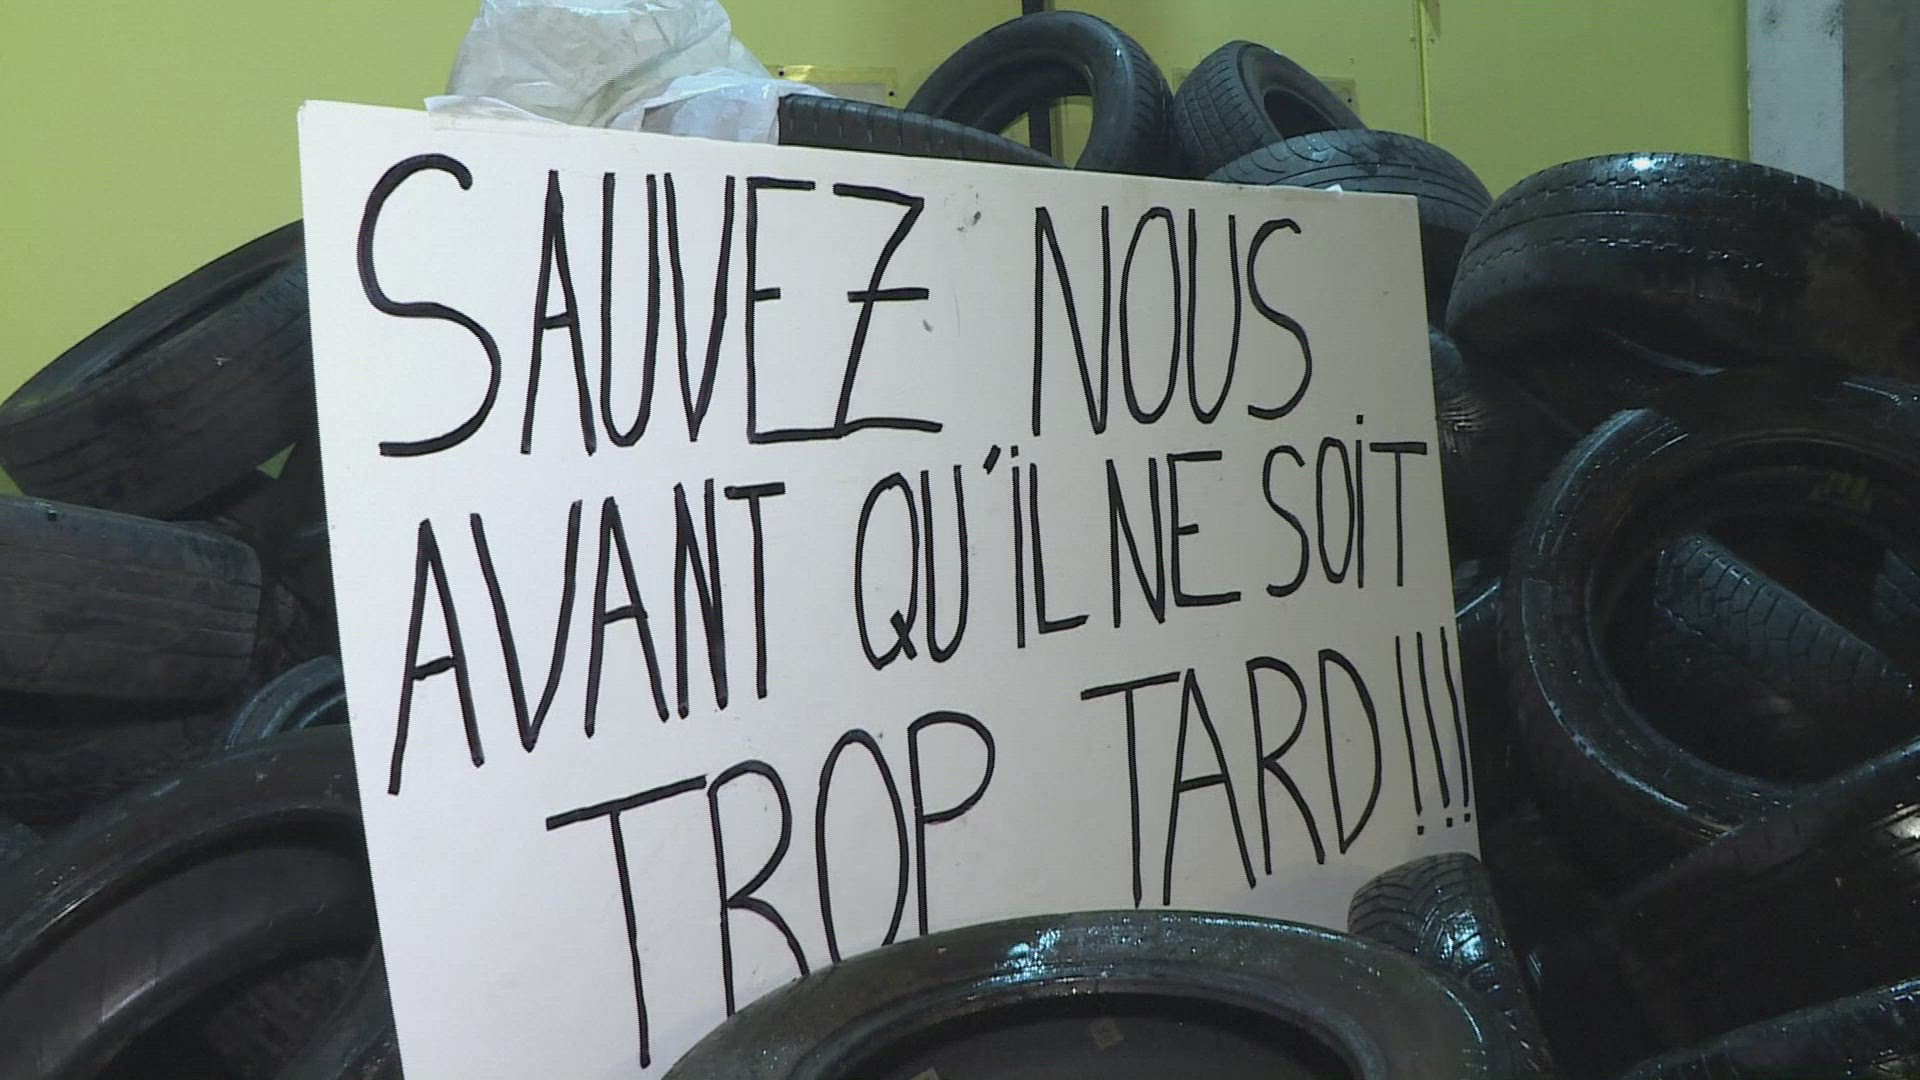 SAUVEZ NOUS
AVANT QU'IL NE SOIT
TROP TARD!!!